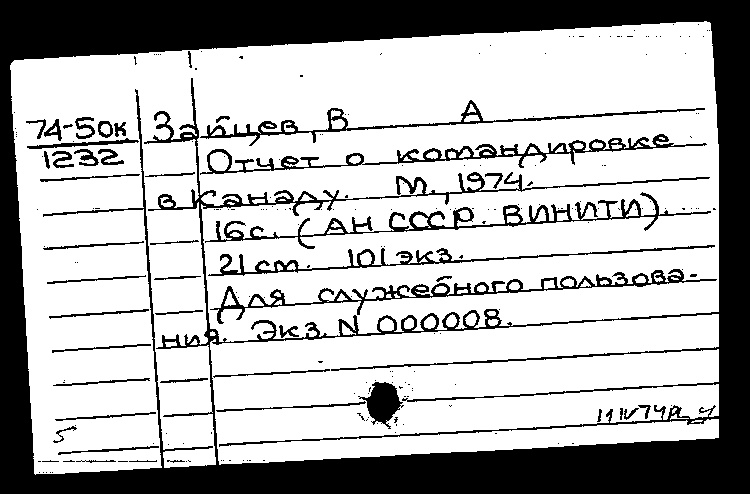 74-50к Зайцев, В А
1232 Отчет о командировке
в Канаду. М., 1974.
16с. (АН СССР. ВИНИТИ).
21 см. 101 экз.
Для служебного пользова-
ния. Экз. N 000008.
5
11 IV 74